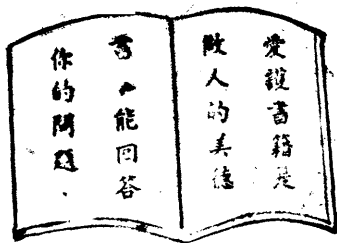 愛護書籍是
做人的美德
書能回答
你的問題.